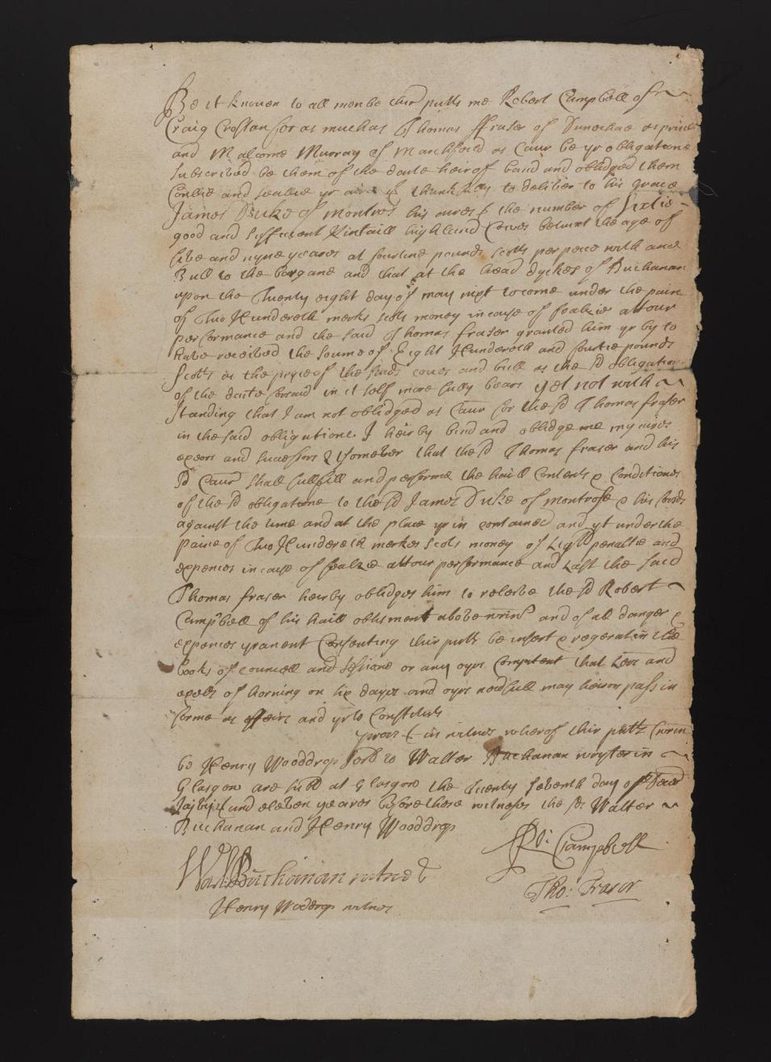 Be it knowen to all men be thir putts me Robert Campbell of
Craig Crostan for as muchas Thomas ffraser of Dunochae as prinle
and Malcome Murray of Marchfeild as Caur be yr obligatione
subscrived be them of the daite heirof band and oblidged them
conllie and sealie yr aires & to delliver to his Grace
James Duke of Montros his aires & the number of sixtie
good and sufficient Kintaill highland Cowes betwixt the age of
five and nyne yeares at fourtine pounds Scotts per peece with ane
Bull to the bargane and that at the head dyckes of Buchanan
upon the Twenty eight day of may nixt to come under the paine
of Two Hundereth merks Scots money in cayse of sealzie attour
performance and the said Thomas fraser granted him yr by to
have received the soume of Eight Hundereth and fourtie pounds
Scotts as the pryce of the saids cowes and bull as the sd obligatione
of the daite forsaid in it self more fully bears yet not with
standing that I am not oblidged as Caur for the sd Thomas fraser
in the said obligatione. I heirby bind and oblidge me my aires
exers and successors & that the sd Thomas fraser and his
sd Caur shall fullfill and performe the haill contents & conditiones
of the sd obligatione to the sd James Duke of montrose & his forsds
against the time and at the place yr in contained and yt under the
paine of Two Hundereth merkes Scots money of penaltie and
expences in cayse of sealzie attour performance and Last the said
Thomas fraser heirby oblidges him to releive the sd Robert
Campbell of his haill oblisment above wrin and of all danger &
expences yranent Consenting thir putts be insert & regerat in the
books of councell and sessione or any oyrs Competent that Lers and
exells of horning on six dayes and oyrs neidfull may heiron pass in
forme as effeirs and yrto Constituts
prors & in witnes wherof thir putts wrin
be Henry Wooddrop servd to Walter Buchanan wryter in
Glasgow are subd at Glasgow the twenty seventh day of
Jajvijc and eleven yeares before these witneses the sd Walter
Buchanan and Henry Wooddrop
Ro: Campbell
Wa: Buchanan witnes
Tho: Fraser
Henry Wooddrop witnes